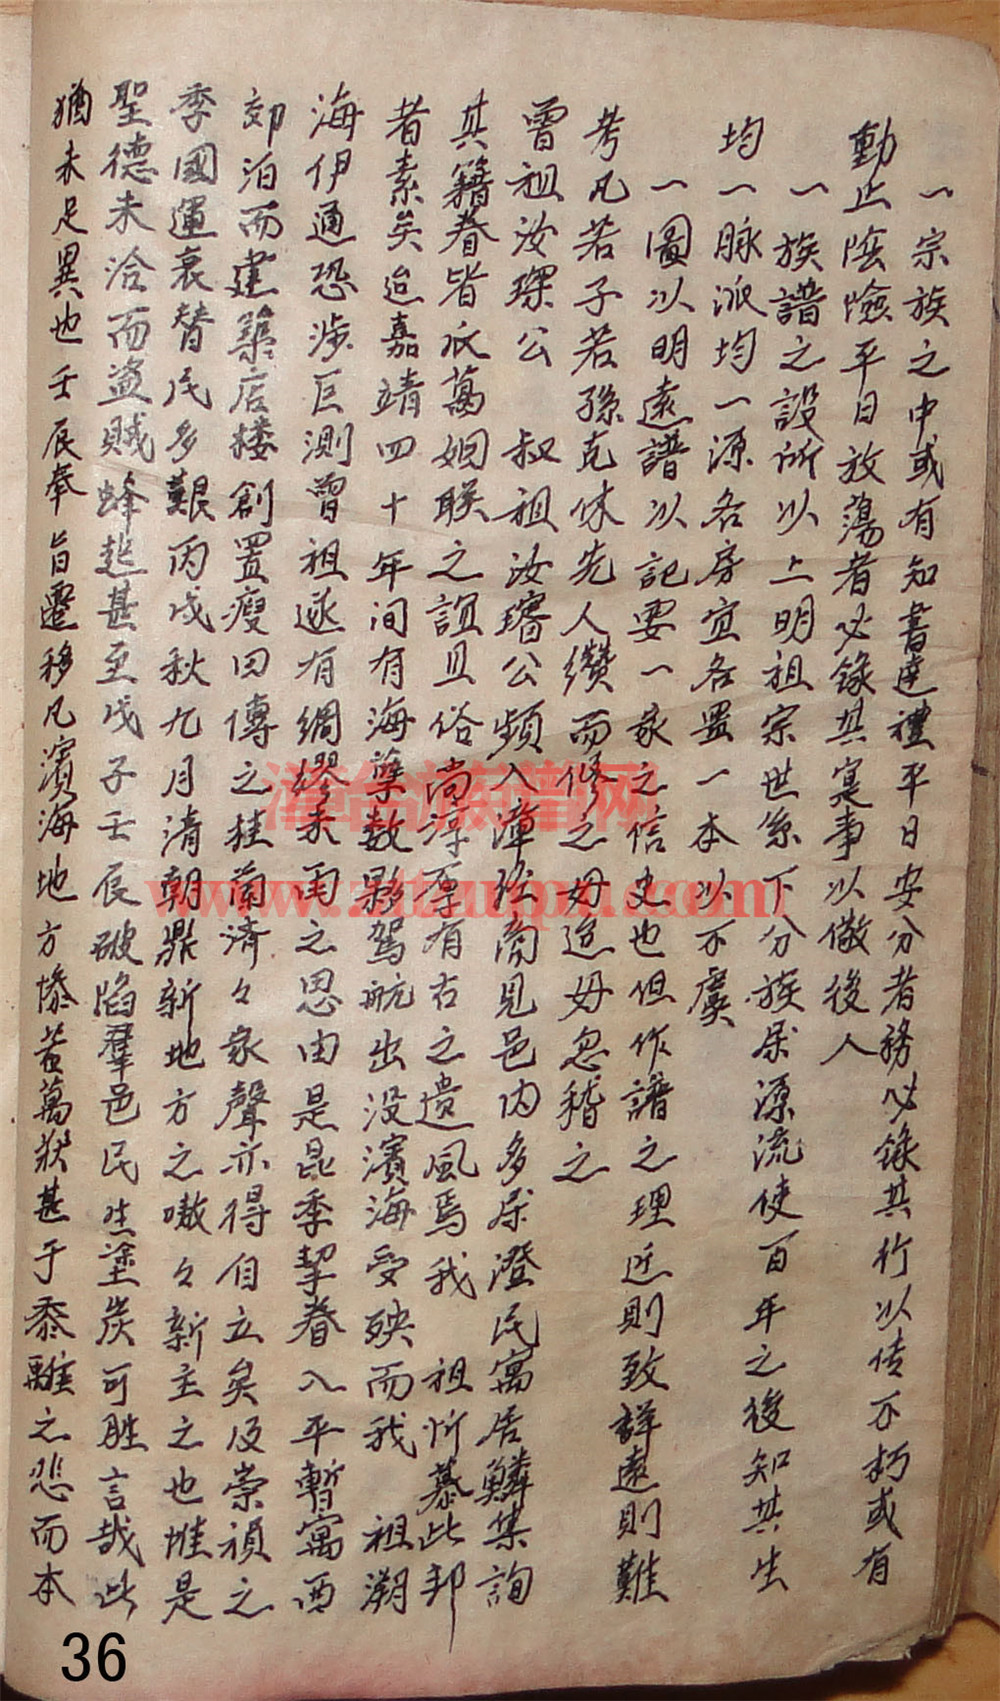 一宗族之中或有知書達禮平日安分者務必錄其行以传不朽或有
動止陰險平日放蕩者必錄其寔事以儆後人
一族譜之設所以上明祖宗世系下分族屎源流使百年之後知其生
均一脉派均一源各房宜各置一本以不虞
一圖以明遠譜以記要一家之信史也但作譜之理近則致詳遠則難
考凡若子若孫克休先人纘而修之毋迨毋忽稽之
曾祖汝琛公 叔祖汝璿公頻入漳經商見邑内多屎澄民寓居鱗集詢
其籍眷皆瓜葛姻联之誼且俗尚淳厚有古之遗風焉我 祖忻慕此邦
者素矣迨嘉靖四十年间有海孽数夥駕航出没濱海受殃而我 祖溯
海伊通恐涉叵測曾祖遂有綢繆未雨之思由是昆季挈眷入平暫寓西
郊泊而建築店楼創置瘦田傳之桂蘭濟々家聲亦得自立矣及崇禎之
季國運衰替民多艱丙戌秋九月清朝鼎新地方之嗷々新主之也惟是
聖德未洽而盗贼蜂起甚至戊子壬辰破陷羣邑民生塗炭可胜言哉此
猶未足異也壬辰奉旨遷移凡濱海地方惨蓝萬狀甚于黍離之悲而本
36
漳台族譜网
www.ztzupu.com